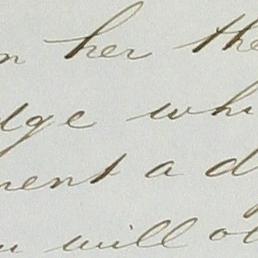 n her the
dge whi
ment a d
u will ol